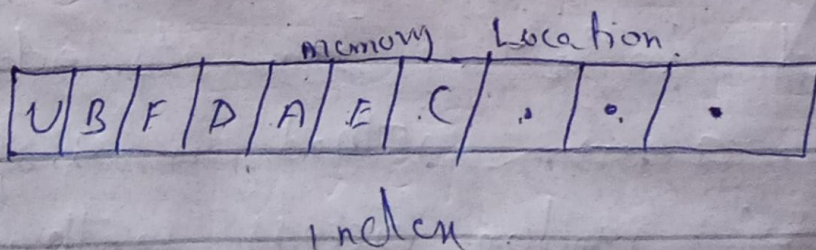 Memory Location.
U B F D A E C . . .
Index